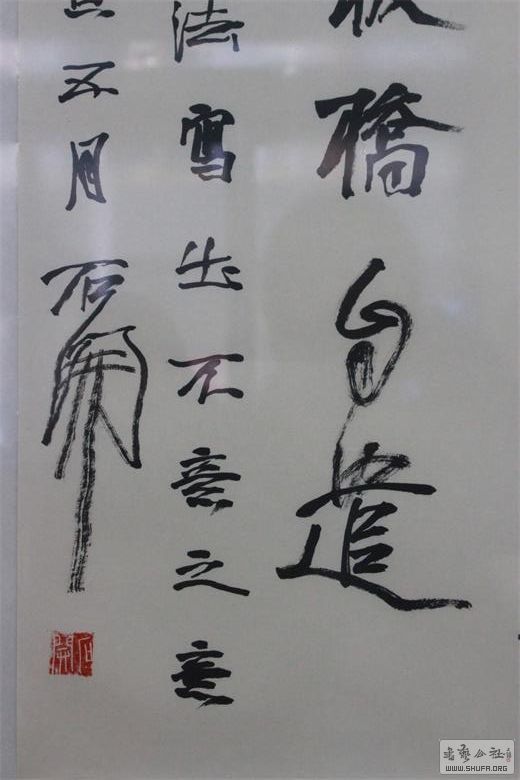 板橋自造
法寫出不意之意
五月石開
石開
書藝公社
WWW.SHUFA.ORG